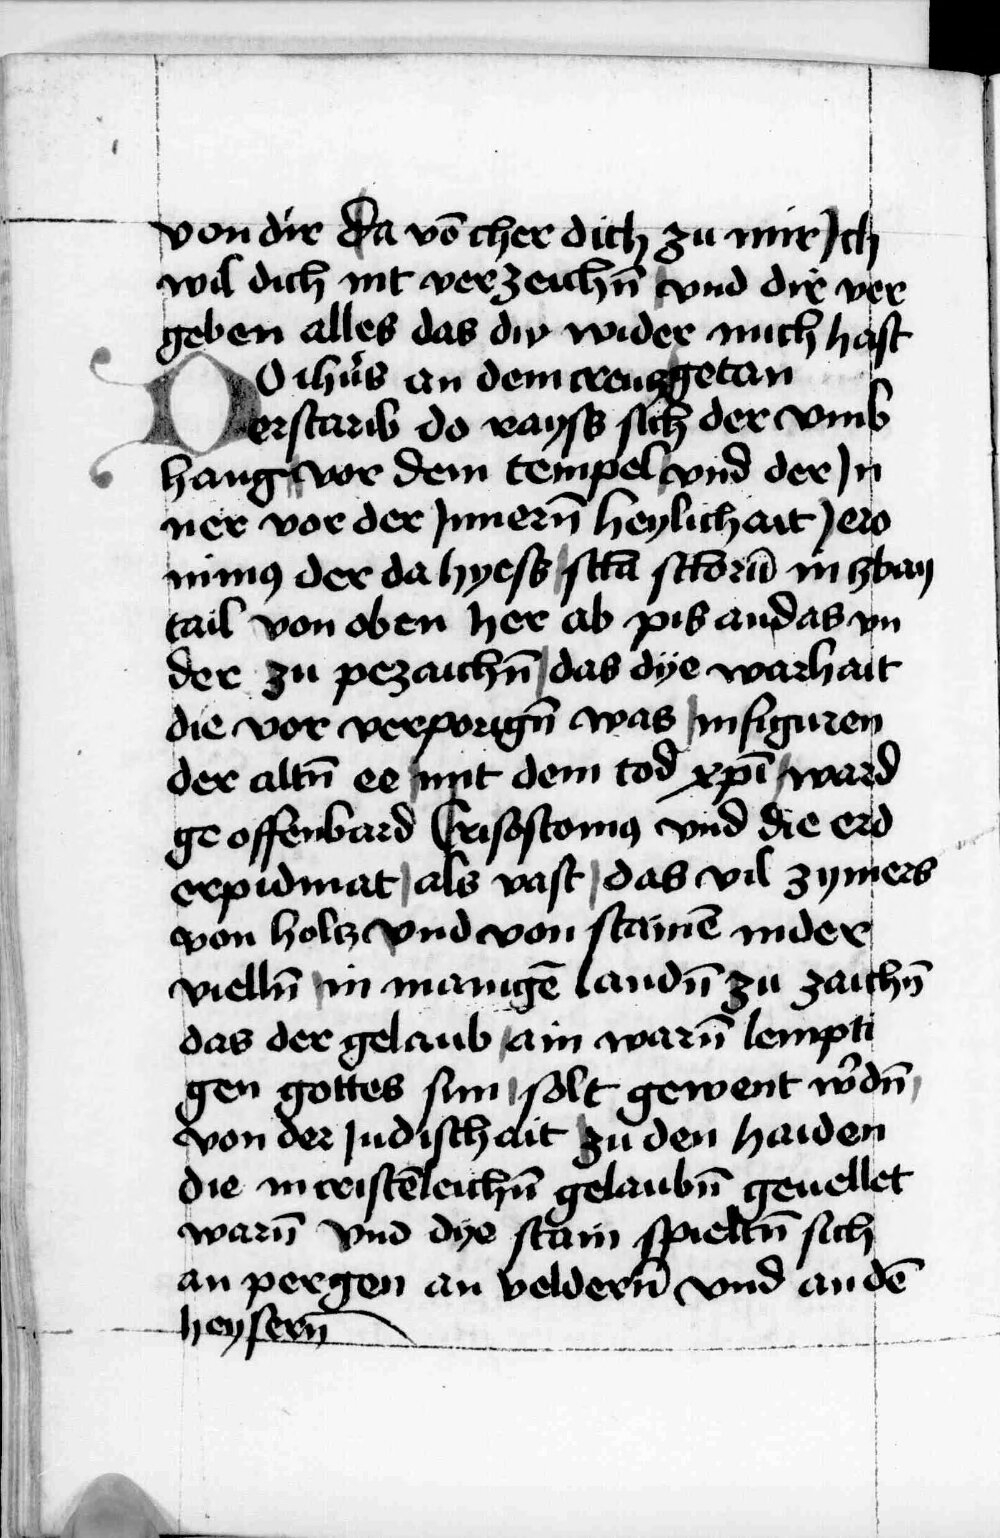 von dir Da võ cher dich zu mir Jch
wil dich nit verzeichñ vnd dir ver
geben alles das dw wider mich hast
DO ihũs an dem creutz getan
erstarib do rayss sich der vmb
hang vor dem tempel vnd der Jn
ner vor der Jnnerñ heylichait Jero
nimꝰ der da hyess sctã sctõrũ in zbay
tail von oben her ab pis an das vn
der zu pezaichñ das dye warhait
die vor verporigñ was in figuren
der altñ ee mit dem tod xp̄i ward
ge offenbard Crisostomꝰ vnd die erd
erpidmat als vast das vil zymers
von holtz vnd von stainẽ nider
viellñ in manigẽ landñ zu zaichñ
das der gelaub ain warñ lempti
gen gottes sun solt gewent w̃dñ
von der Judischait zu den haiden
die in cristẽleichñ gelaubñ geuellet
warñ vnd dye stain spieltñ sich
an pergen an velderñ vnd an dẽ
heyserñ